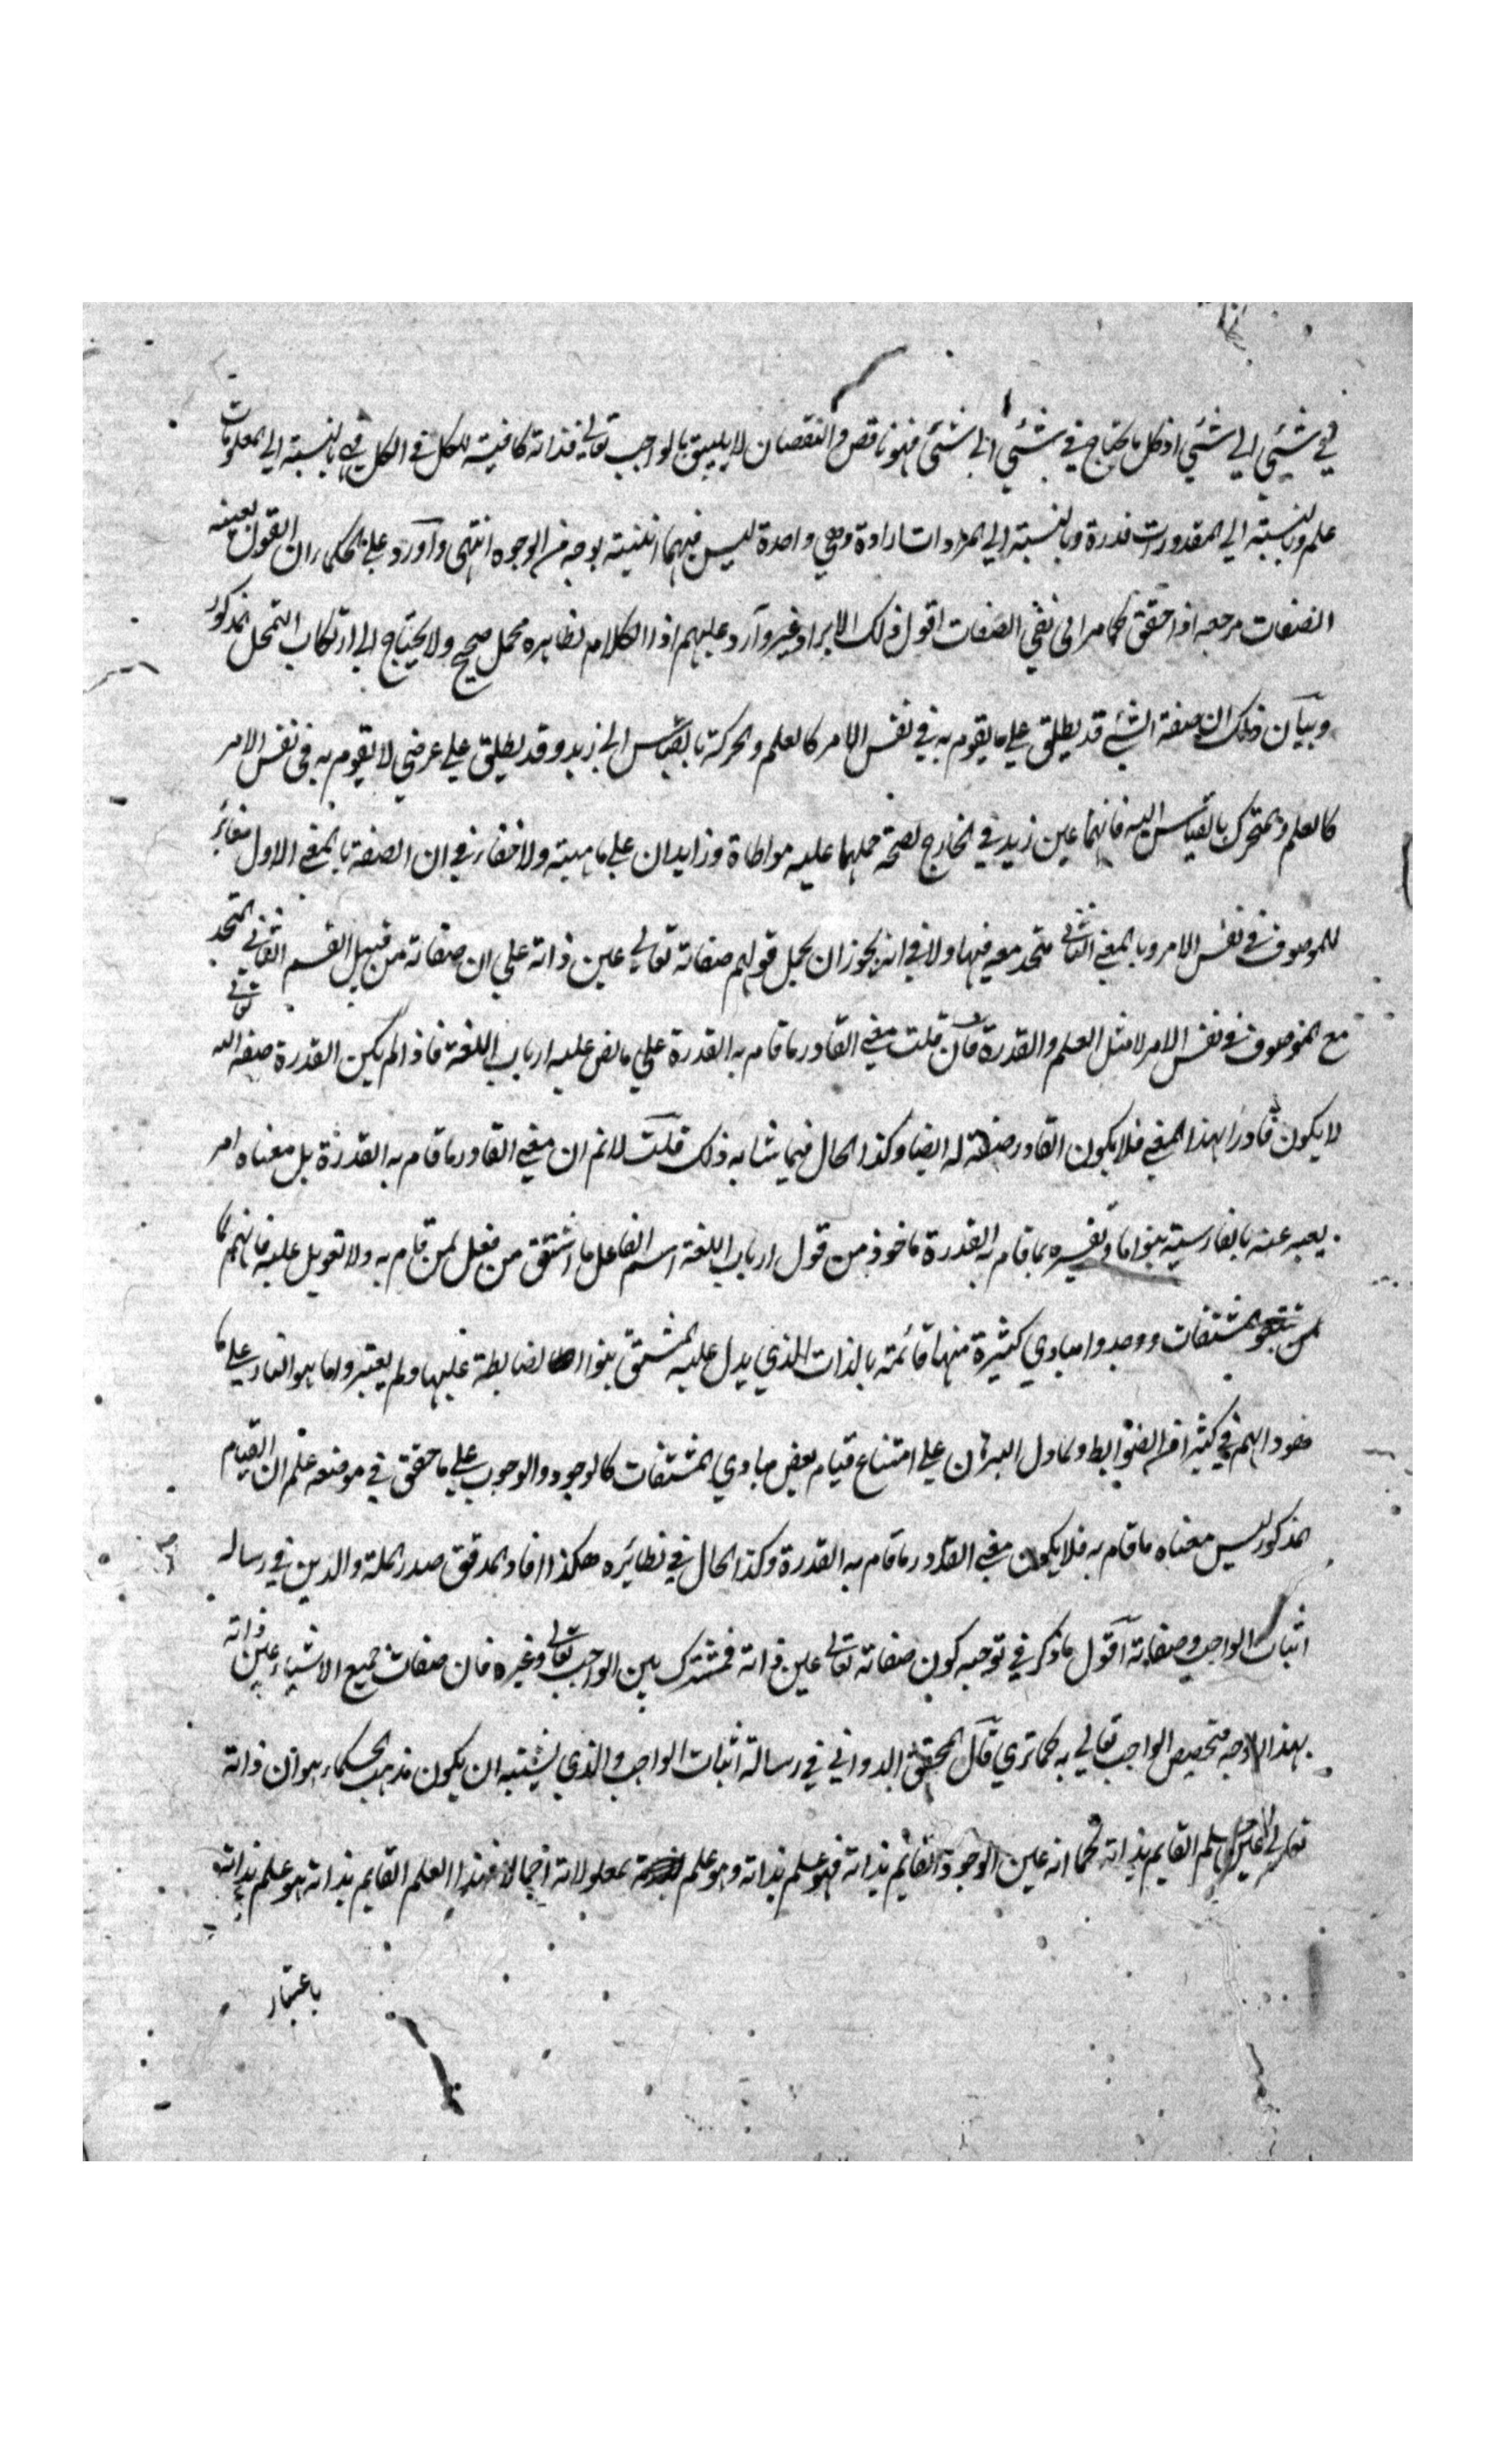 في شيئي الي شيئي اذ كل ما يحتاج في شيئي الي شيئي فهو ناقص والنقصان لا يليق بالواجب تعالي فذاته كافية للكل في الكل فهي بالنسبة الي المعلومات
علم وبالنسبة الي المقدورات قدرة وبالنسبة الي المرادات ارادة وهي واحدة ليس فيهما اثنينية بوجه من الوجوه انتهي وآورد علي الحكماء ان القول بعينية
الصفات مرجعه اذا حقق كما مر الي نفي الصفات اقول ذلك الايراد غير وآرد عليهم اذ الكلام لظاهره محمل صحيح ولا يحتاج الي ارتكاب التمحل المذكور
وبيآن ذلك ان صفة الشئ قد يطلق علي ما يقوم به في نفس الامر كالعلم والحركة بالقياس الي زيد وقد يطلق علي عرضي لا يقوم به في نفس الامر
كالعلم والمتحرك بالقياس اليه فانهما عين زيد في الخارج لصحة حملهما عليه مواطاة وزايدان علي ماهيته ولا خفاء في ان الصفة بالمعني الاول مغائر
للموصوف في نفس الامر وبالمعني الثاني متحد معه فيها ولا في انه يجوز ان يحمل قولهم صفاته تعالي عين ذاته علي ان صفاته من قبيل القسم الثاني المتحد
مع الموصوف في نفس الامر لا مثل العلم والقدرة فان قلت معني القادر ما قام به القدرة علي ما نص عليه ارباب اللغة فاذا لم يكن القدرة صفة لله تعالي
لا يكون قادرا بهذا المعني فلا يكون القادر صفة له ايضا وكذا الحال فيما شابه ذلك قلت لا نم ان معني القادر ما قام به القدرة بل معناه امر
يعبر عنه بالفارسية بتوانا وتفسيره بما قام به القدرة ماخوذ من قول ارباب اللغة اسم الفاعل ما اشتق من فعل لمن قام به ولا تعويل عليه فانهم لما
المشتقات ووجدوا مبادي كثيرة منها قائمة بالذات الذي يدل عليه المشتق بنوا الضابطة عليها ولم يعتبروا ما هو النادر علي ما
هو دابهم في كثير من الضوابط ولما دل البرهان علي امتناع قيام بعض مبادي المشتقات كالوجود والوجوب علي ما حقق في موضعه علم ان القيام
المذكور ليس معناه ما قام به فلا يكون معني القادر ما قام به القدرة وكذا الحال في نظائره هكذا افاد المدقق صدر الملة والدين في رسالة
اثبات الواجب وصفاته آقول ما ذكر في توجيه كون صفاته تعالي عين ذاته فمشترك بين الواجب تعالي وغيره فان صفات جميع الاشياء عين ذاته
بهذا الوجه فتخصيص الواجب تعالي به كما تري قآل المحقق الدواني في رسالة اثبات الواجب والذي يشبه ان يكون مذهب الحكماء هو ان ذاته
تعالي عين العلم القايم بذاته كما انه عين الوجود القائم بذاته فهو علم بذاته وهو علم بمعلولاته اجمالا فهذا العلم القايم بذاته هو علم بذاته
باعتبار